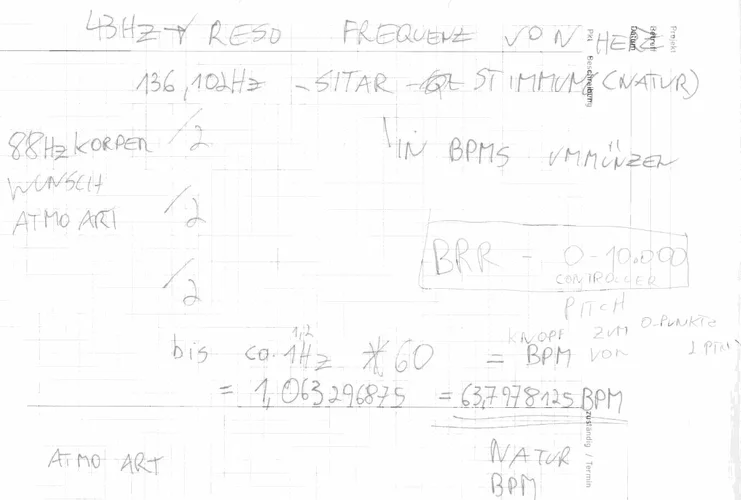 43HZ → RESO FREQUENZ VON HERZ
136,102HZ - SITAR - STIMMUNG (NATUR)
/2
88HZ KÖRPER
IN BPMS UMMÜNZEN
WUNSCH
ATMO ART
/2
BRR - 0-10.000
CONTROLLER
/2
PITCH
KNOPF ZUM 0-PUNKTE
VON
bis ca. 1Hz * 60 = BPM
1,2
= 1,063296875 = 63,7978125 BPM
ATMO ART
NATUR
BPM
Projekt
Datum
Beschreibung
zuständig / Termin